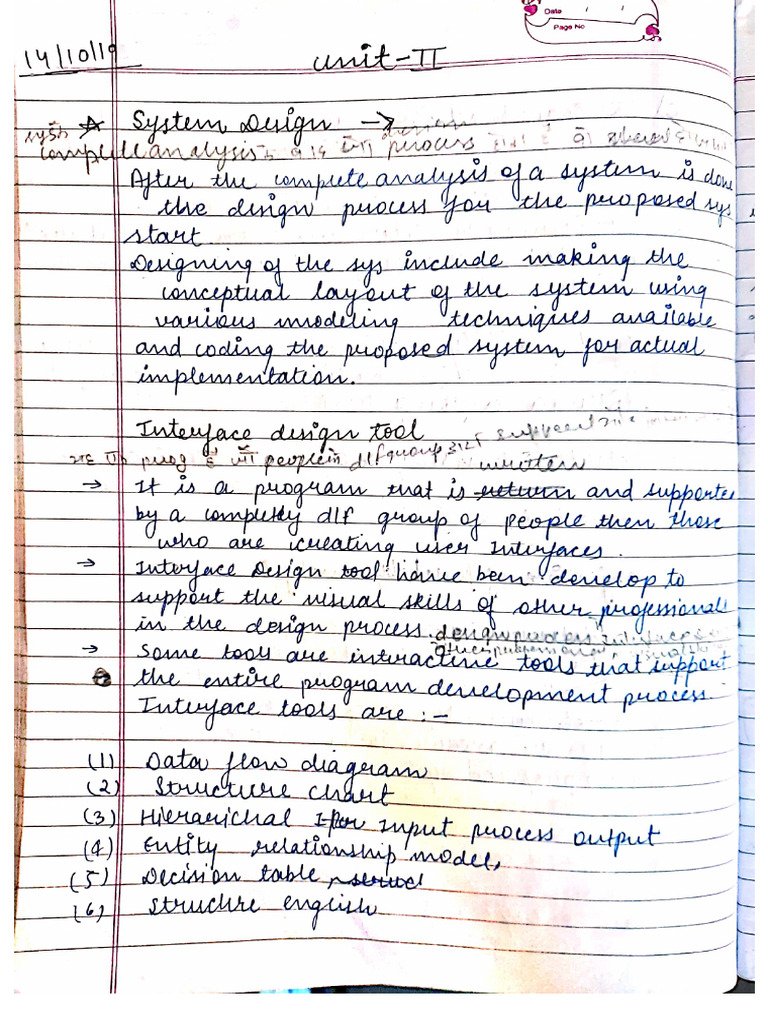 Date
Page No
14/10/19
Unit-II
System Design →
complete analysis के बाद process
After the complete analysis of a system is done
the design process for the proposed sys
start
Designing of the sys include making the
conceptual layout of the system using
various modeling techniques available
and coding the proposed system for actual
implementation.
Interface design tool
यह एक prog है जो people के dif group द्वारा support
written
→ It is a program that is return and supporte
by a completly dif group of people then those
who are creating user Interfaces.
→ Interface Design tool have been develop to
support the visual skills of other professionals
in the design process. design process
→ Some tools are interactive tools that support
the entire program development process
Interface tools are :-
(1) Data flow diagram
(2) Structure chart
(3) Hierarichal Input process output
(4) Entity relationship model,
(5) Decision table, struc
(6) Structure english